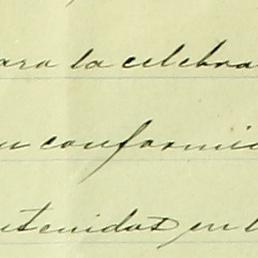 ara la celebra
n conformi
ntenidos en l